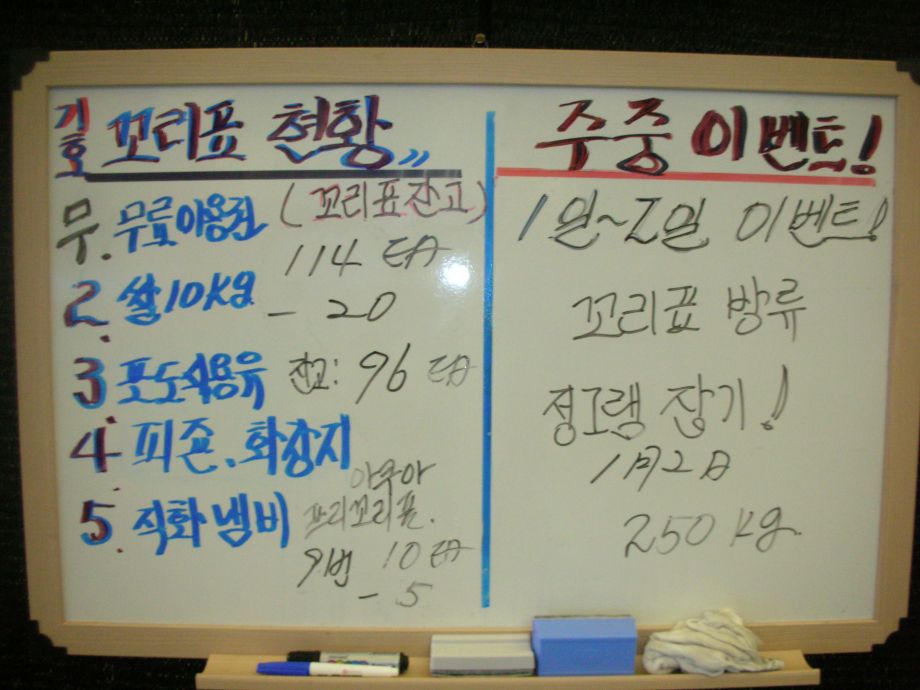 기호 꼬리표 현황
무. 무료이용권 (꼬리표잔고)
114 EA
2. 쌀10kg - 20
3. 포도식용유 잔고: 96 EA
4. 피죤. 화장지
5. 직화냄비
아쿠아
프리꼬리표.
91번 10 EA
- 5
주중 이벤트!
1일~2일 이벤트!
꼬리표 방류
정그램 잡기!
1月2日
250 kg